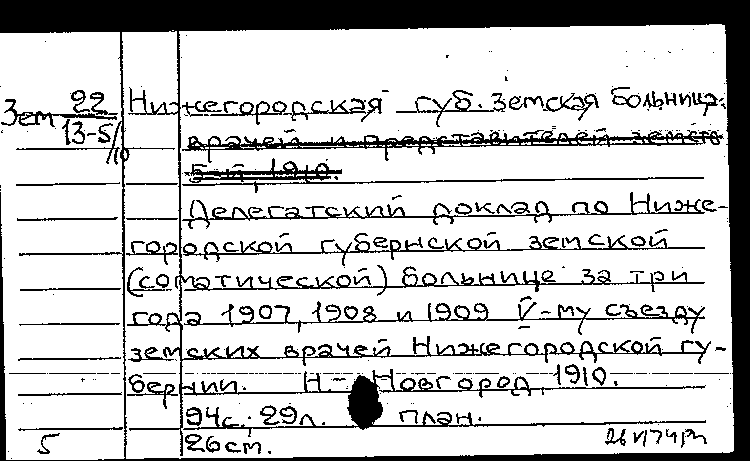 Зем 22
13-5/10
Нижегородская губ. земская больница.
врачей и представителей земств
5-й, 1910.
Делегатский доклад по Ниже-
городской губернской земской
(соматической) больнице за три
года 1907, 1908 и 1909 V-му съезду
земских врачей Нижегородской гу-
бернии. Н.-Новгород, 1910.
94с.; 29л. план.
5 26см.